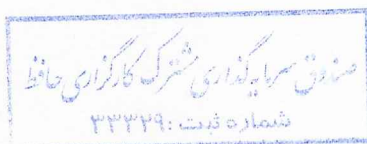 صندوق سرمایه‌گذاری مشترک کارگزاری حافظ
شماره ثبت: ۳۳۳۲۹